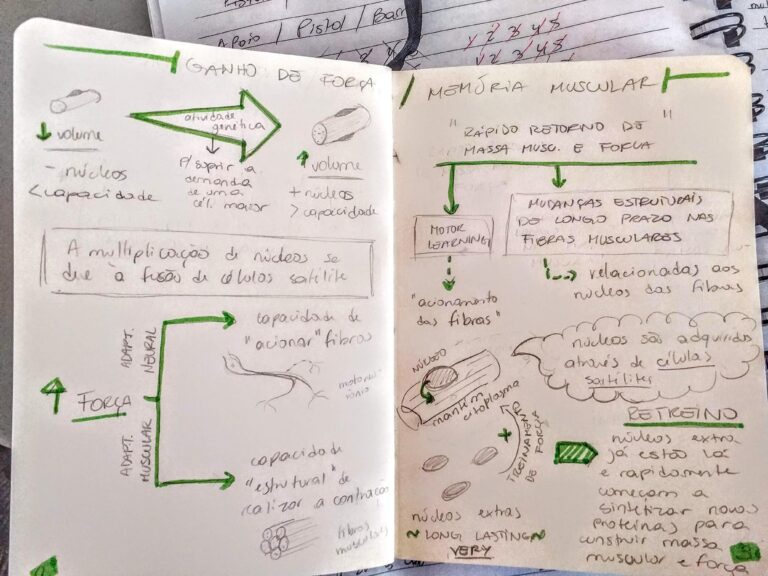 Apoio / Pistol / Barr
1 2 3 4 5
2 3 4 5
GANHO DE FORÇA
volume
- núcleos
< capacidade
atividade
genética
P/ suprir a
demanda
de uma
cél. maior
volume
+ núcleos
> capacidade
A multiplicação de núcleos se
due à fusão de células satélite
FORÇA
ADAPT.
NEURAL
capacidade de
"acionar" fibras
ADAPT.
MUSCULAR
capacidade
"estrutural" de
realizar a contração
fibras
musculares
MEMÓRIA MUSCULAR
"RÁPIDO RETORNO DE
MASSA MUSC. E FORÇA"
MOTOR
LEARNING
"acionamento
das fibras"
MUDANÇAS ESTRUTURAIS
DE LONGO PRAZO NAS
FIBRAS MUSCULARES
relacionadas aos
núcleos das fibras
núcleos são adquiridos
através de células
satélites
NÚCLEO
mantém citoplasma
+
TREINAMENTO
DE FORÇA
núcleos extras
~ LONG LASTING ~
VERY
RETREINO
núcleos extra
já estão lá
e rapidamente
começam a
sintetizar novas
proteínas para
construir massa
muscular e força